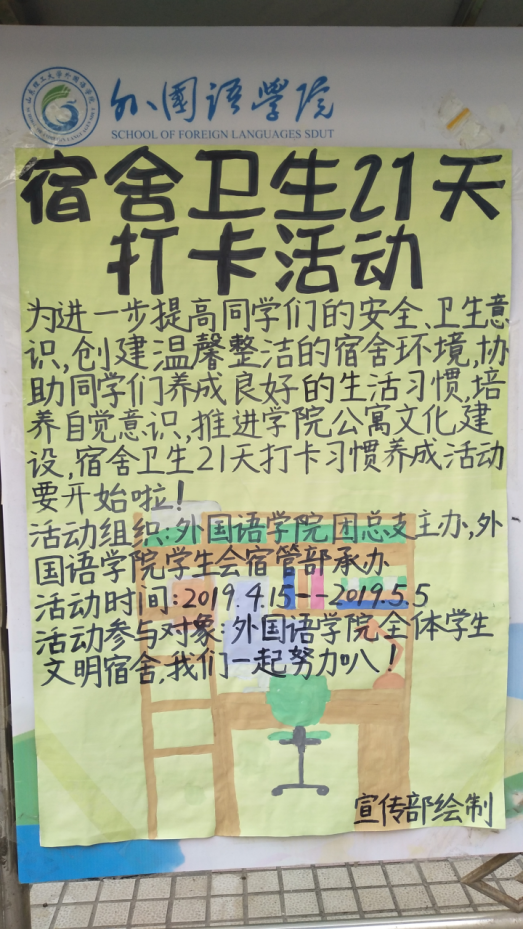 山东理工大学外国语学院
外国语学院
SCHOOL OF FOREIGN LANGUAGES SDUT
宿舍卫生21天
打卡活动
为进一步提高同学们的安全、卫生意
识,创建温馨整洁的宿舍环境,协
助同学们养成良好的生活习惯,培
养自觉意识,推进学院公寓文化建
设,宿舍卫生21天打卡习惯养成活动
要开始啦!
活动组织:外国语学院团总支主办,外
国语学院学生会宿管部承办
活动时间:2019.4.15--2019.5.5
活动参与对象:外国语学院全体学生
文明宿舍,我们一起努力叭!
宣传部绘制